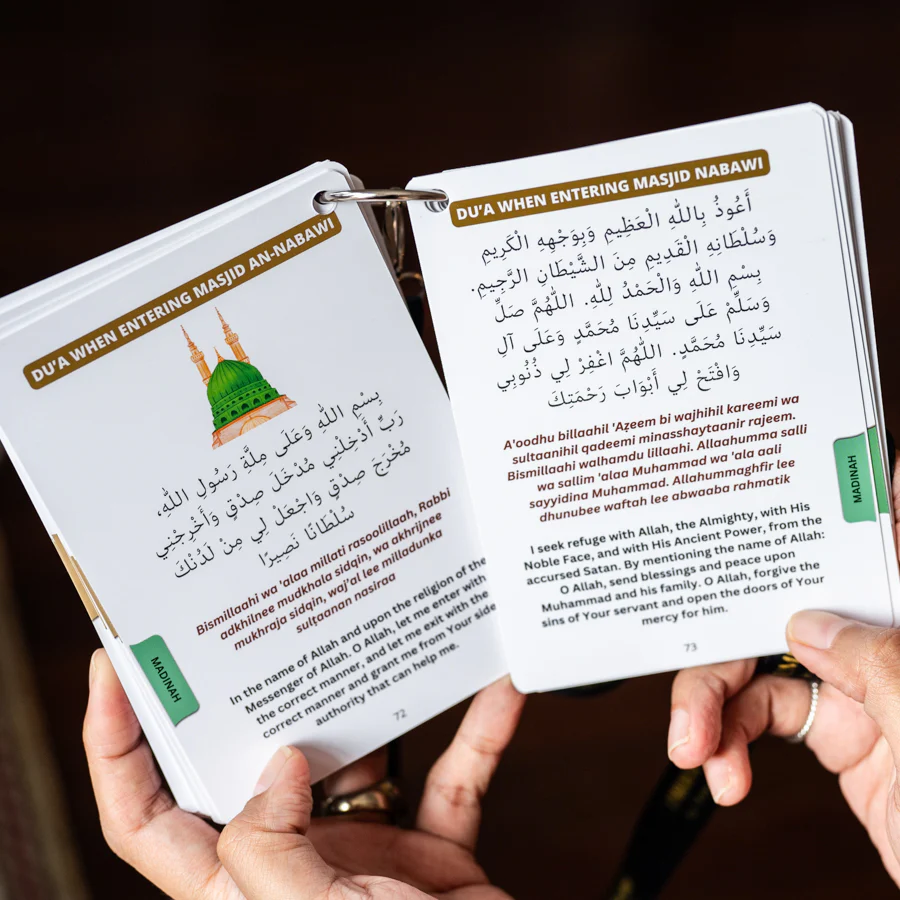 DU'A WHEN ENTERING MASJID AN-NABAWI
بِسْمِ اللهِ وَعَلَى مِلَّةِ رَسُولِ اللهِ،
رَبِّ أَدْخِلْنِي مُدْخَلَ صِدْقٍ وَأَخْرِجْنِي
مُخْرَجَ صِدْقٍ وَاجْعَلْ لِي مِنْ لَدُنْكَ
سُلْطَانًا نَصِيرًا
Bismillaahi wa 'alaa millati rasoolillaah, Rabbi
adkhilnee mudkhala sidqin, wa akhrijnee
mukhraja sidqin, waj'al lee milladunka
sulṭaanan nasiraa
In the name of Allah and upon the religion of the
Messenger of Allah. O Allah, let me enter with
the correct manner, and let me exit with the
correct manner and grant me from Your side
authority that can help me.
72
MADINAH
DU'A WHEN ENTERING MASJID NABAWI
أَعُوذُ بِاللهِ الْعَظِيمِ وَبِوَجْهِهِ الْكَرِيمِ
وَسُلْطَانِهِ الْقَدِيمِ مِنَ الشَّيْطَانِ الرَّجِيمِ.
بِسْمِ اللهِ وَالْحَمْدُ لِلهِ. اللَّهُمَّ صَلِّ
وَسَلِّمْ عَلَى سَيِّدِنَا مُحَمَّدٍ وَعَلَى آلِ
سَيِّدِنَا مُحَمَّدٍ. اللَّهُمَّ اغْفِرْ لِي ذُنُوبِي
وَافْتَحْ لِي أَبْوَابَ رَحْمَتِكَ
A'oodhu billaahil 'Aẓeem bi wajhihil kareemi wa
sultaanihil qadeemi minasshaytaanir rajeem.
Bismillaahi walhamdu lillaahi. Allaahumma salli
wa sallim 'alaa Muhammad wa 'ala aali
sayyidina Muhammad. Allahummaghfir lee
dhunubee waftah lee abwaaba rahmatik
I seek refuge with Allah, the Almighty, with His
Noble Face, and with His Ancient Power, from the
accursed Satan. By mentioning the name of Allah:
O Allah, send blessings and peace upon
Muhammad and his family. O Allah, forgive the
sins of Your servant and open the doors of Your
mercy for him.
73
MADINAH